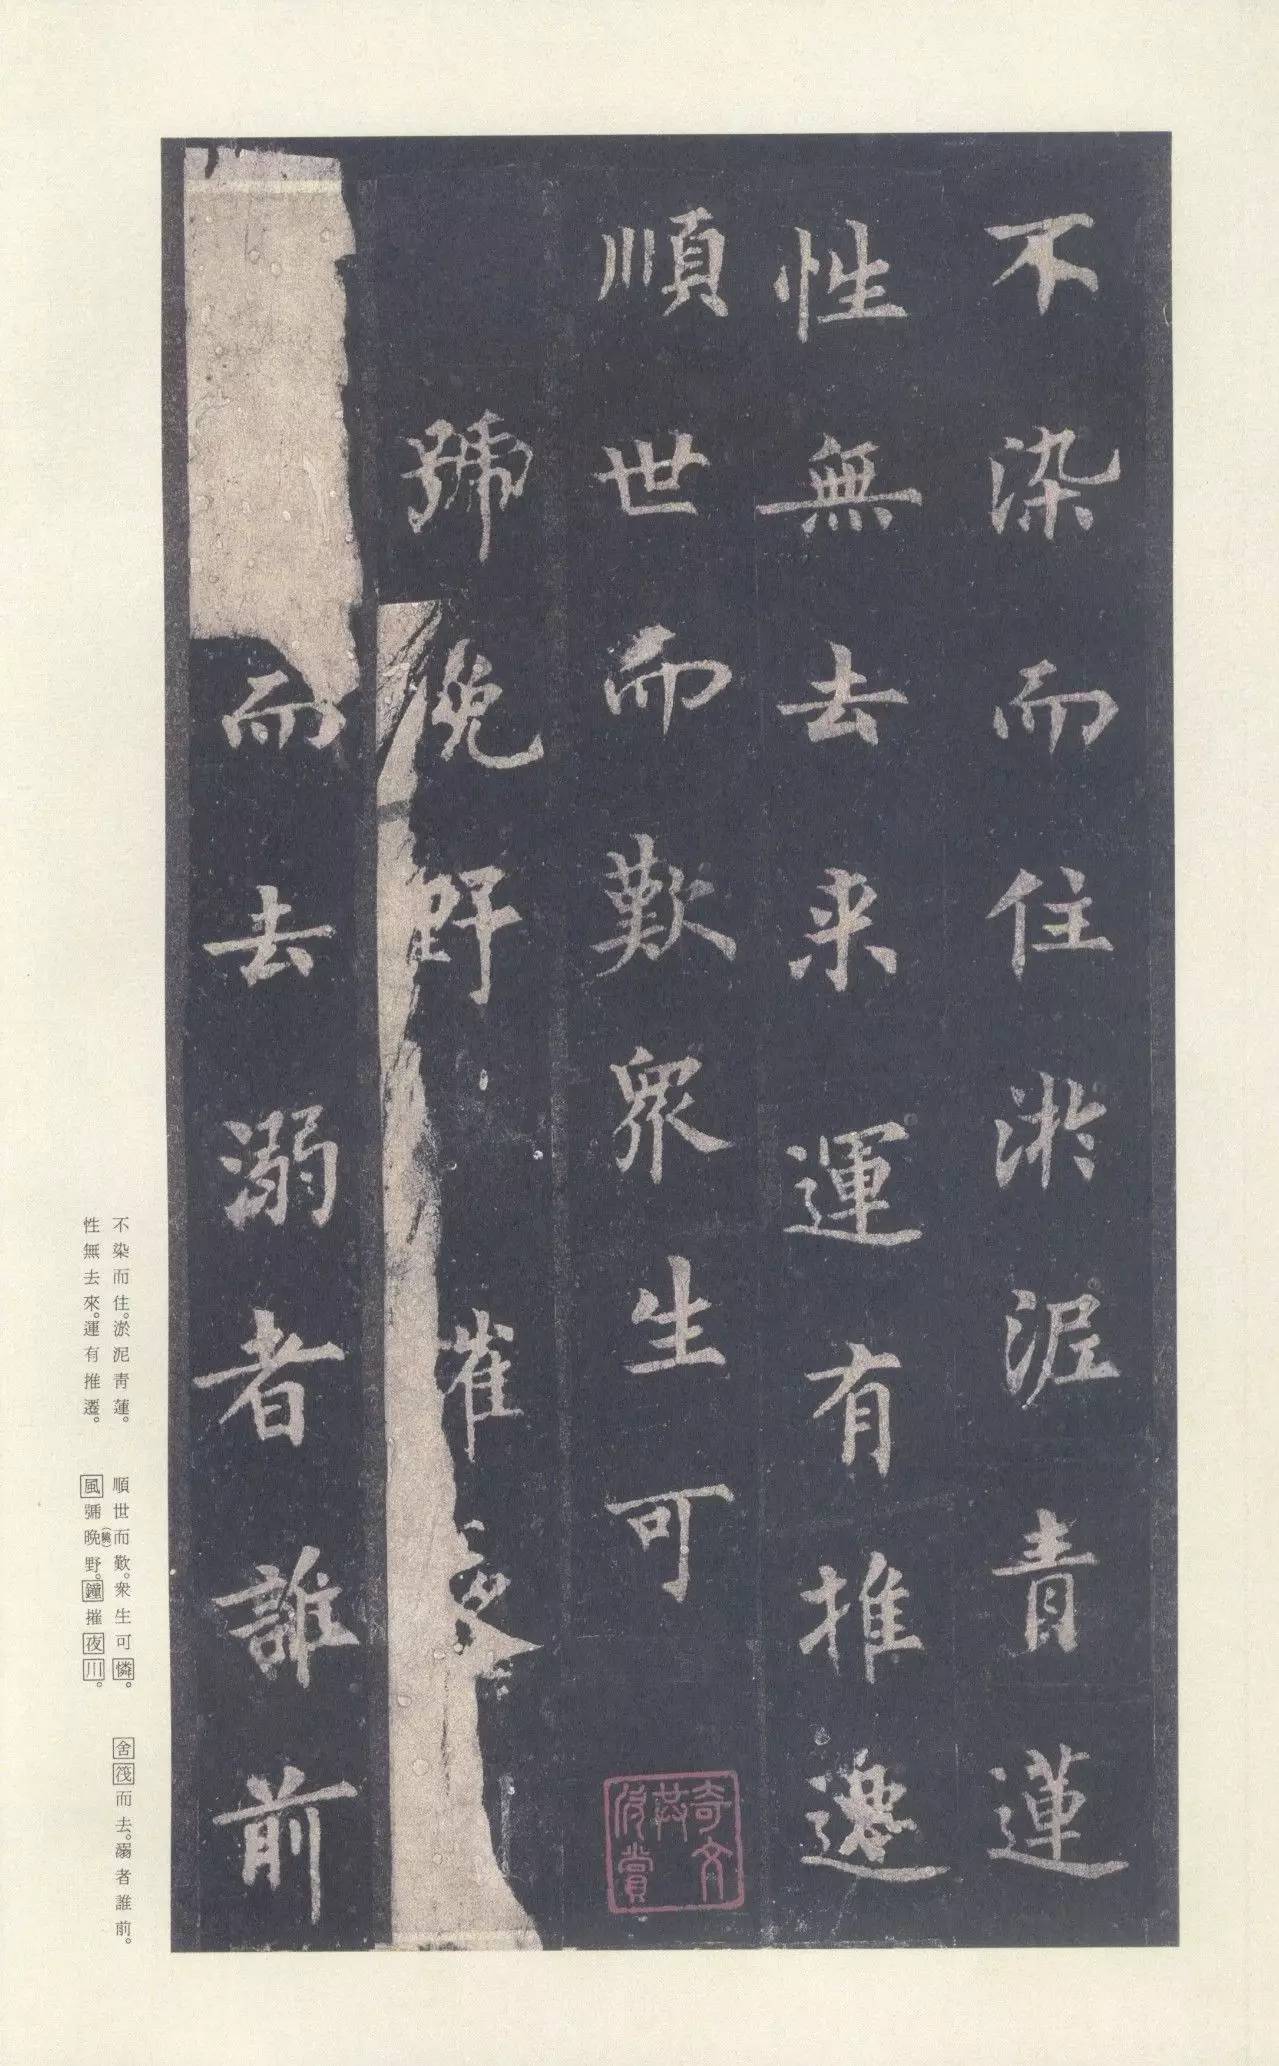 不染而住淤泥青蓮
性無去来運有推遷
順世而歎衆生可
號晚野摧夜
而去溺者誰前
奇文共欣賞
不染而住。淤泥青蓮。
性無去來。運有推遷。
順世而歎。衆生可憐。
風號晚野。鐘摧夜川。
舍筏而去。溺者誰前。